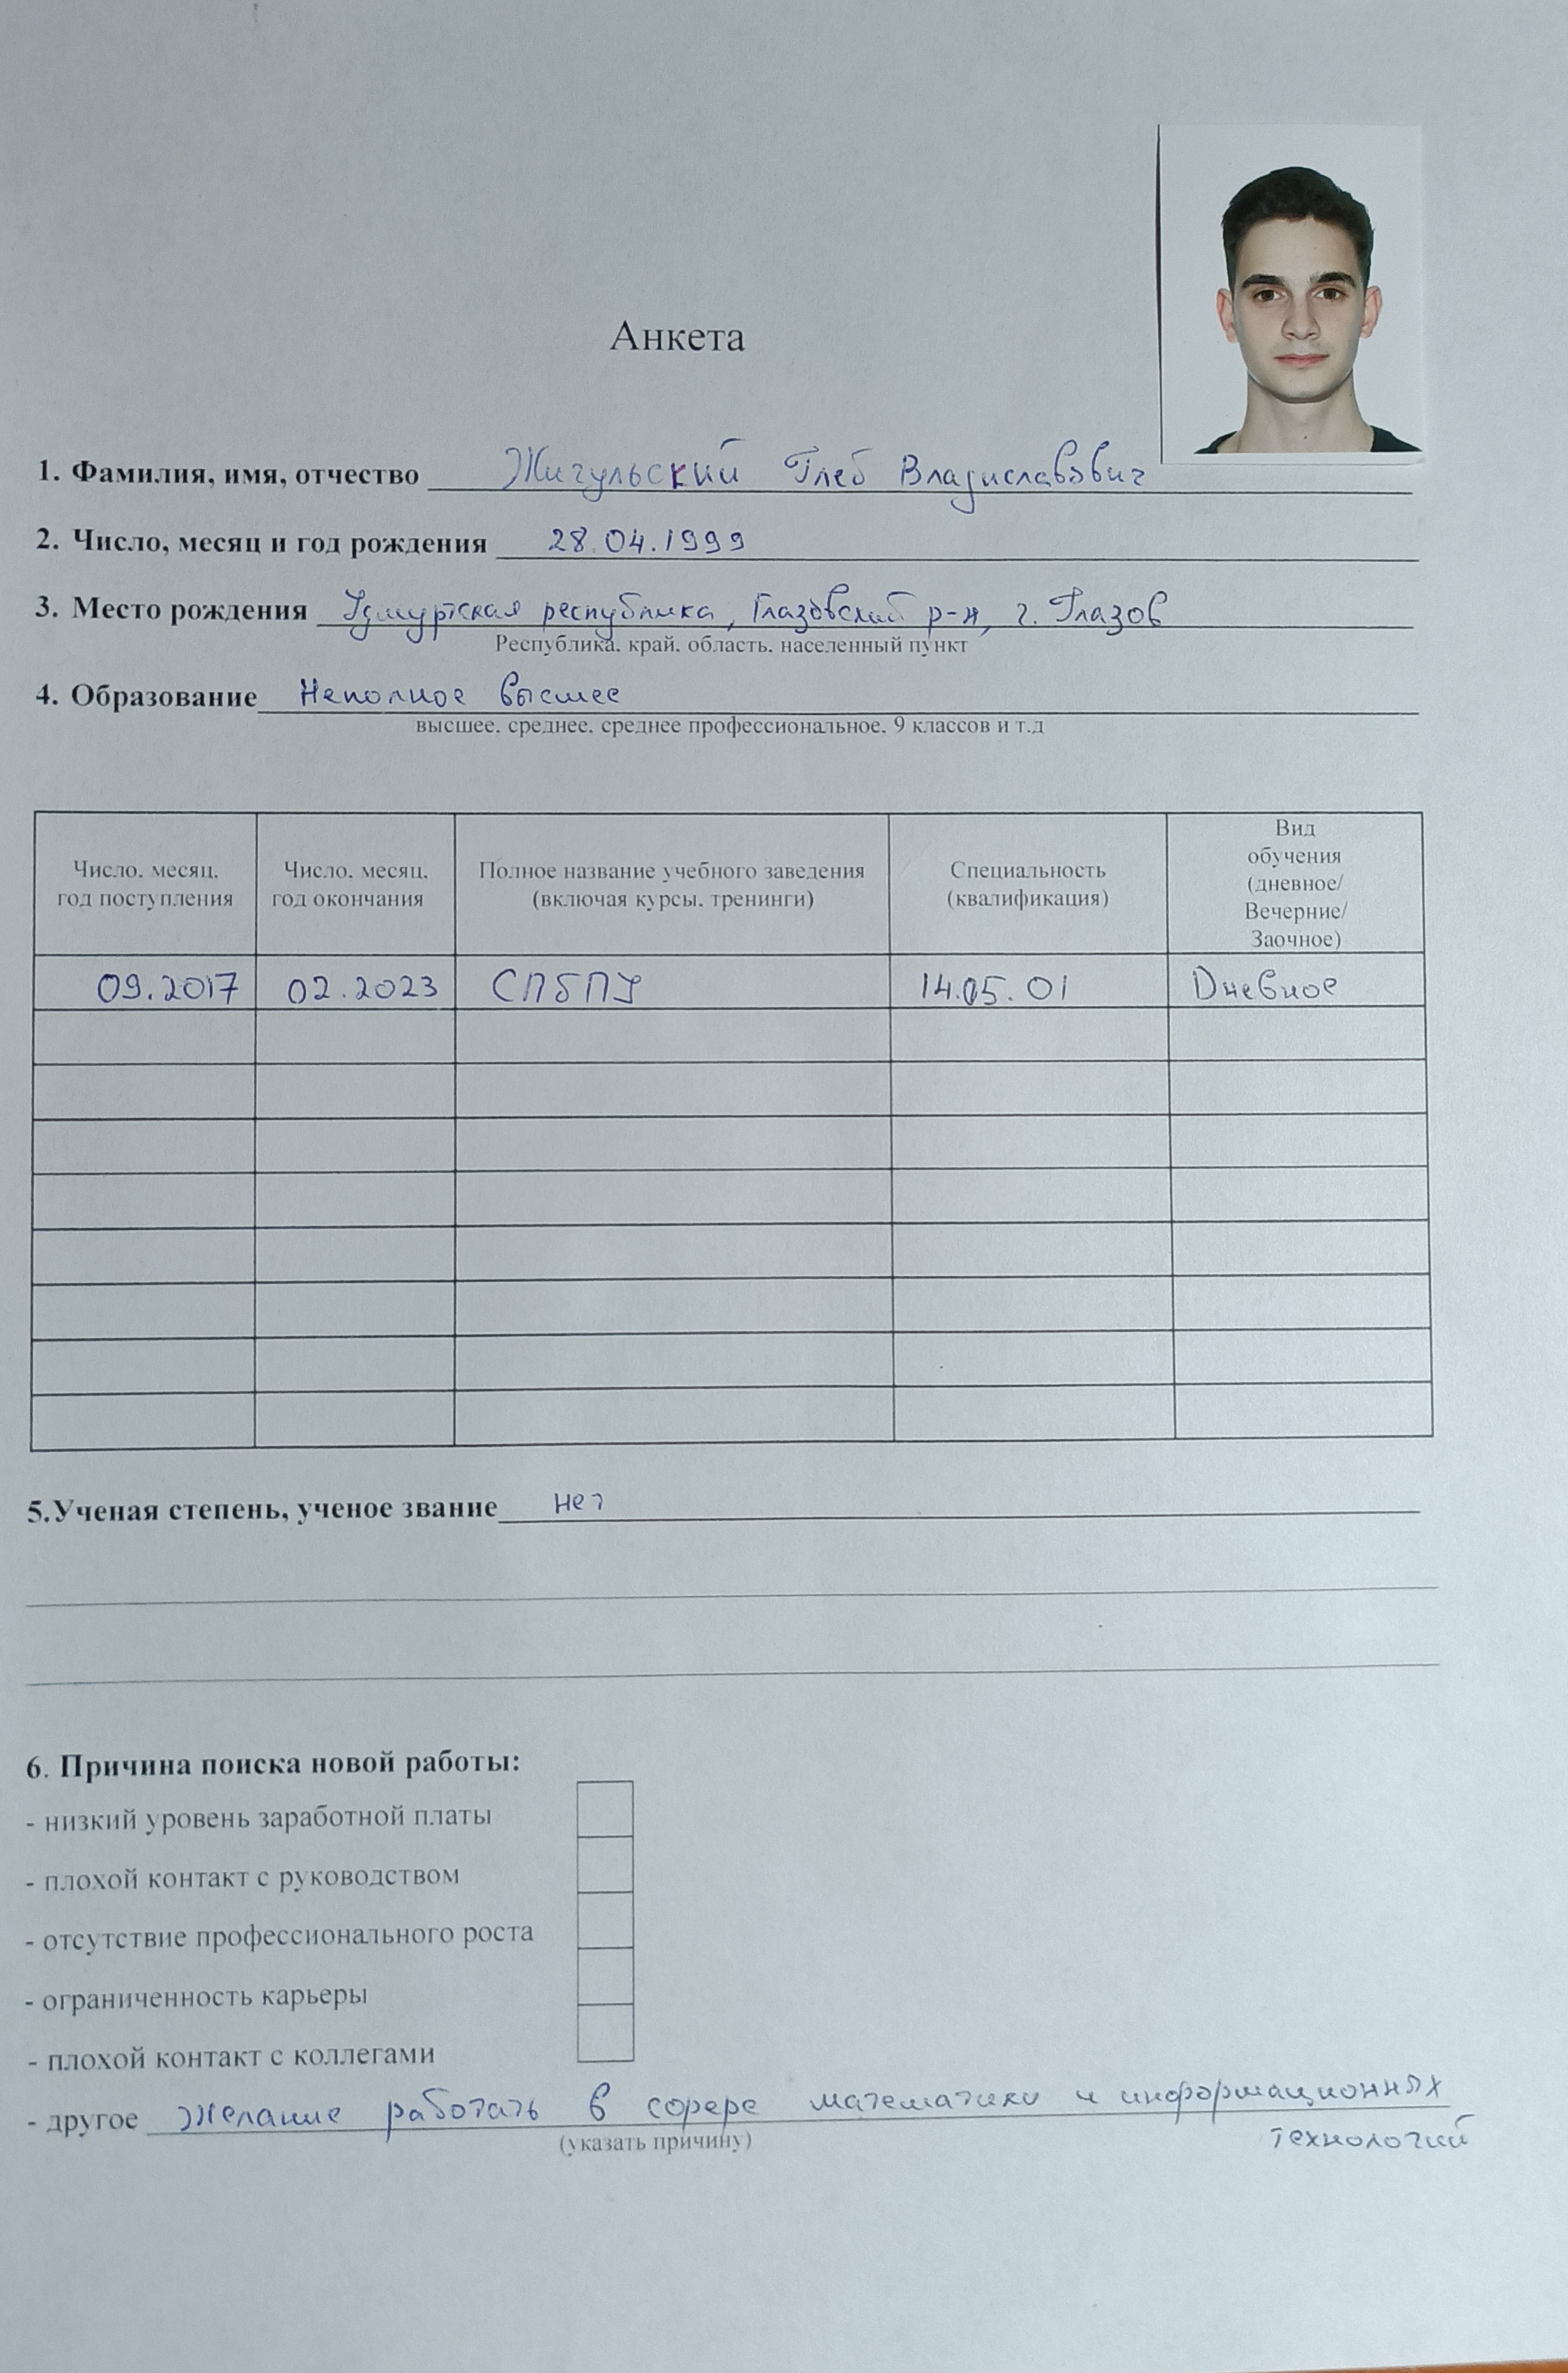 Анкета
1. Фамилия, имя, отчество Жигульский Глеб Владиславович
2. Число, месяц и год рождения 28.04.1999
3. Место рождения Удмуртская республика, Глазовский р-н, г. Глазов
Республика, край, область, населенный пункт
4. Образование Неполное высшее
высшее, среднее, среднее профессиональное, 9 классов и т.д
Число, месяц, год поступления
Число, месяц, год окончания
Полное название учебного заведения (включая курсы, тренинги)
Специальность (квалификация)
Вид обучения (дневное/ Вечерние/ Заочное)
09.2017 02.2023 СПБПУ 14.05.01 Дневное
5.Ученая степень, ученое звание нет
6. Причина поиска новой работы:
- низкий уровень заработной платы
- плохой контакт с руководством
- отсутствие профессионального роста
- ограниченность карьеры
- плохой контакт с коллегами
- другое Желание работать в сфере математики и информационных
(указать причину) технологий